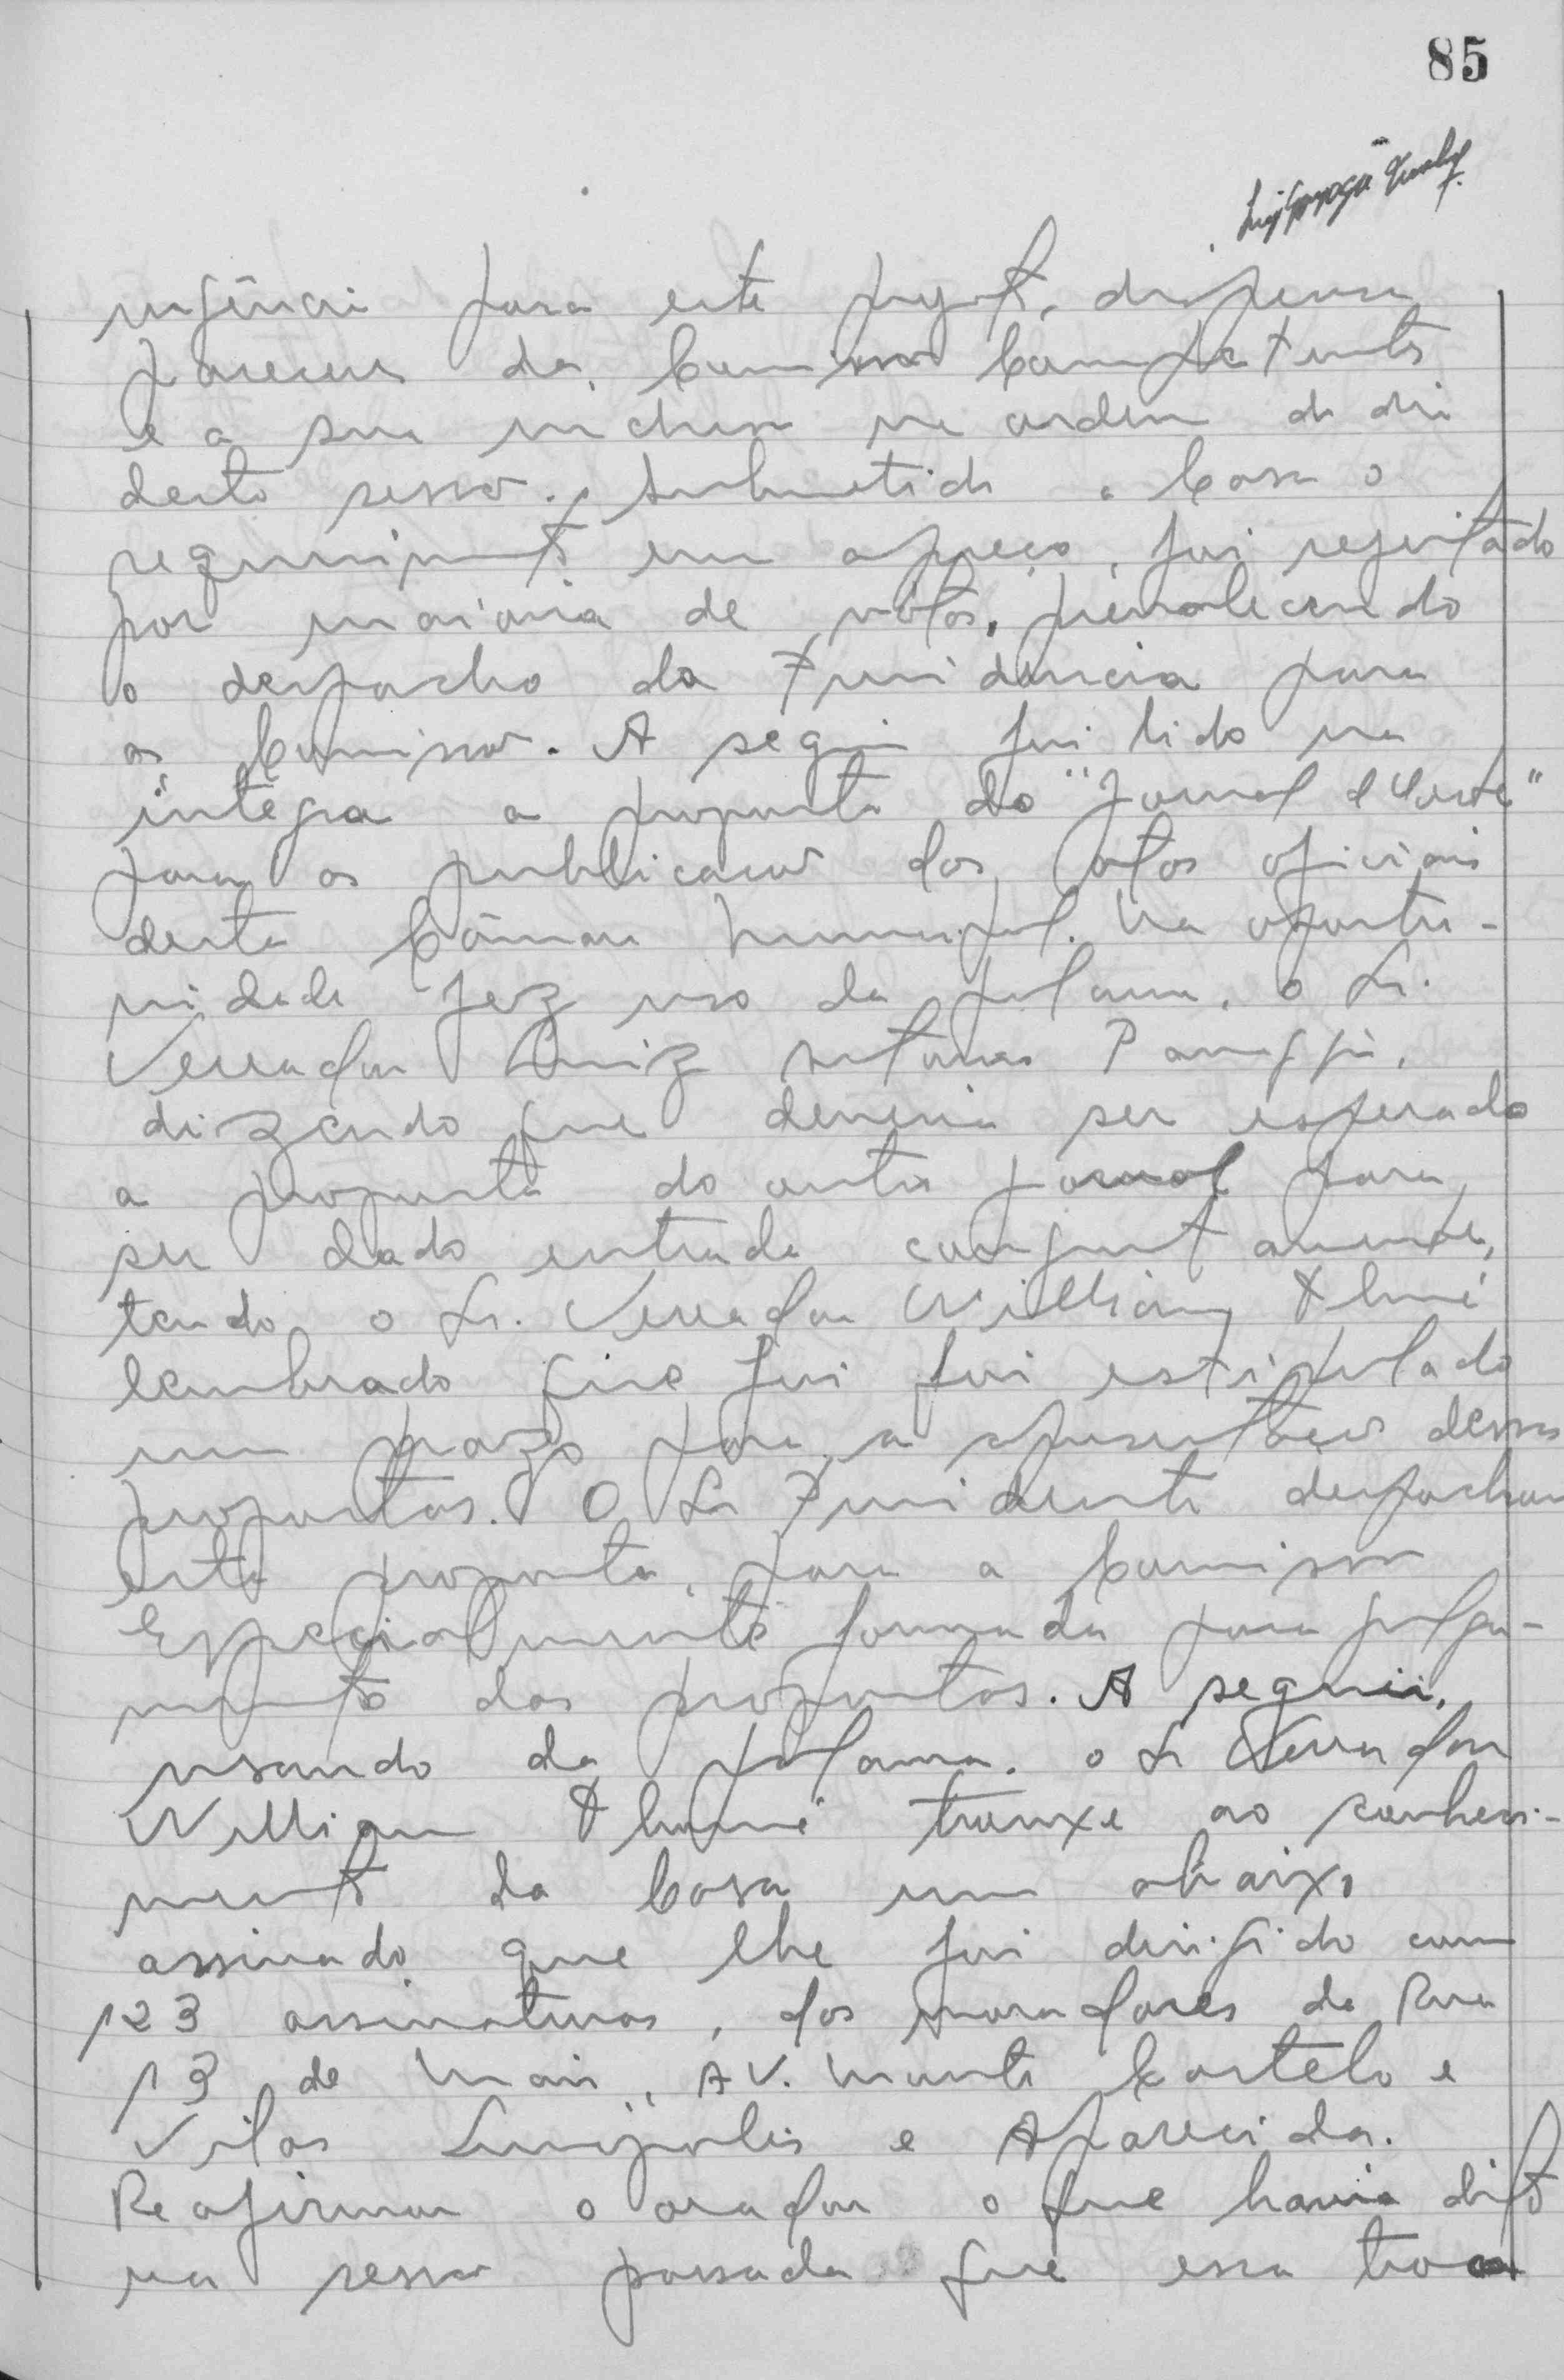 85
urgência para este projeto, dispensa
pareceres da Comissão Competente
e a sua inclusão na ordem do dia
desta sessão. Submetido a Casa o
requerimento em apreço, foi rejeitado
por maioria de votos, prevalecendo
o despacho da Presidencia para
as Comissão. A seguir foi lido na
íntegra a proposta do "Jornal d'Oeste"
para as publicacoes dos atos oficiais
desta Câmara Municipal. Na oportu-
nidade fez uso da palavra, o Sr.
Vereador Luiz Antonio
dizendo que deveria ser esperado
a proposta do outro jornal para
ser dado entrada conjuntamente,
tendo o Sr. Vereador William Thomé
lembrado que foi foi estipulado
um prazo para a apresentação dessas
propostas. O Sr Presidente despachou
esta proposta, para a Comissão
Especialmente formada para julga-
mento das propostas. A seguir,
usando da palavra, o Sr Vereador
William Thomé trouxe ao conheci-
mento da Casa um abaixo
assinado que lhe foi dirigido com
123 assinaturas, dos moradores da Rua
13 de Maio, AV. Monte Castelo e
Vilas e Aparecida.
Reafirmou o orador o que havia dito
na sessão passada que essa